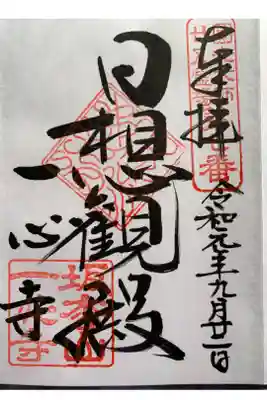 奉拝
令和元年九月廿一日
日想観殿
一心寺
坂松山
一心寺